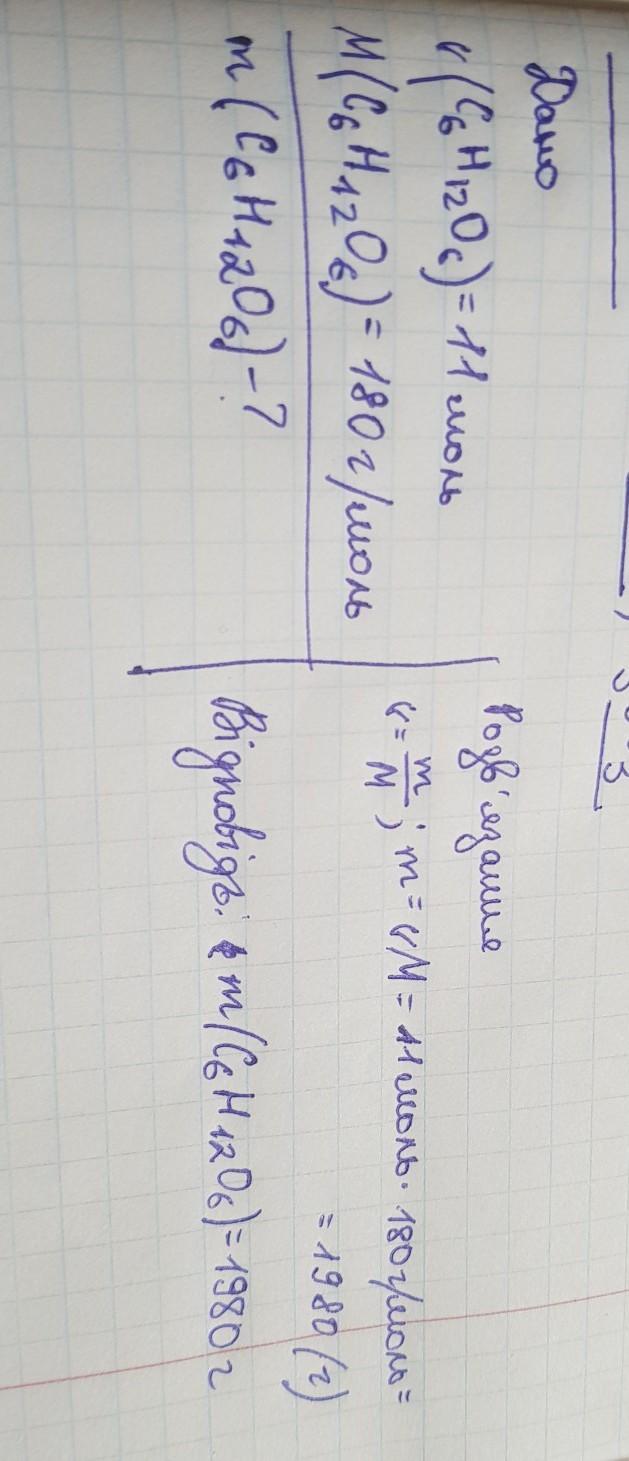 Дано
ν(C₆H₁₂O₆)=11моль
M(C₆H₁₂O₆)=180г/моль
m(C₆H₁₂O₆)-?
Розв'язання
ν=m/M; m=νM=11моль·180г/моль=
=1980(г)
Відповідь: m(C₆H₁₂O₆)=1980г